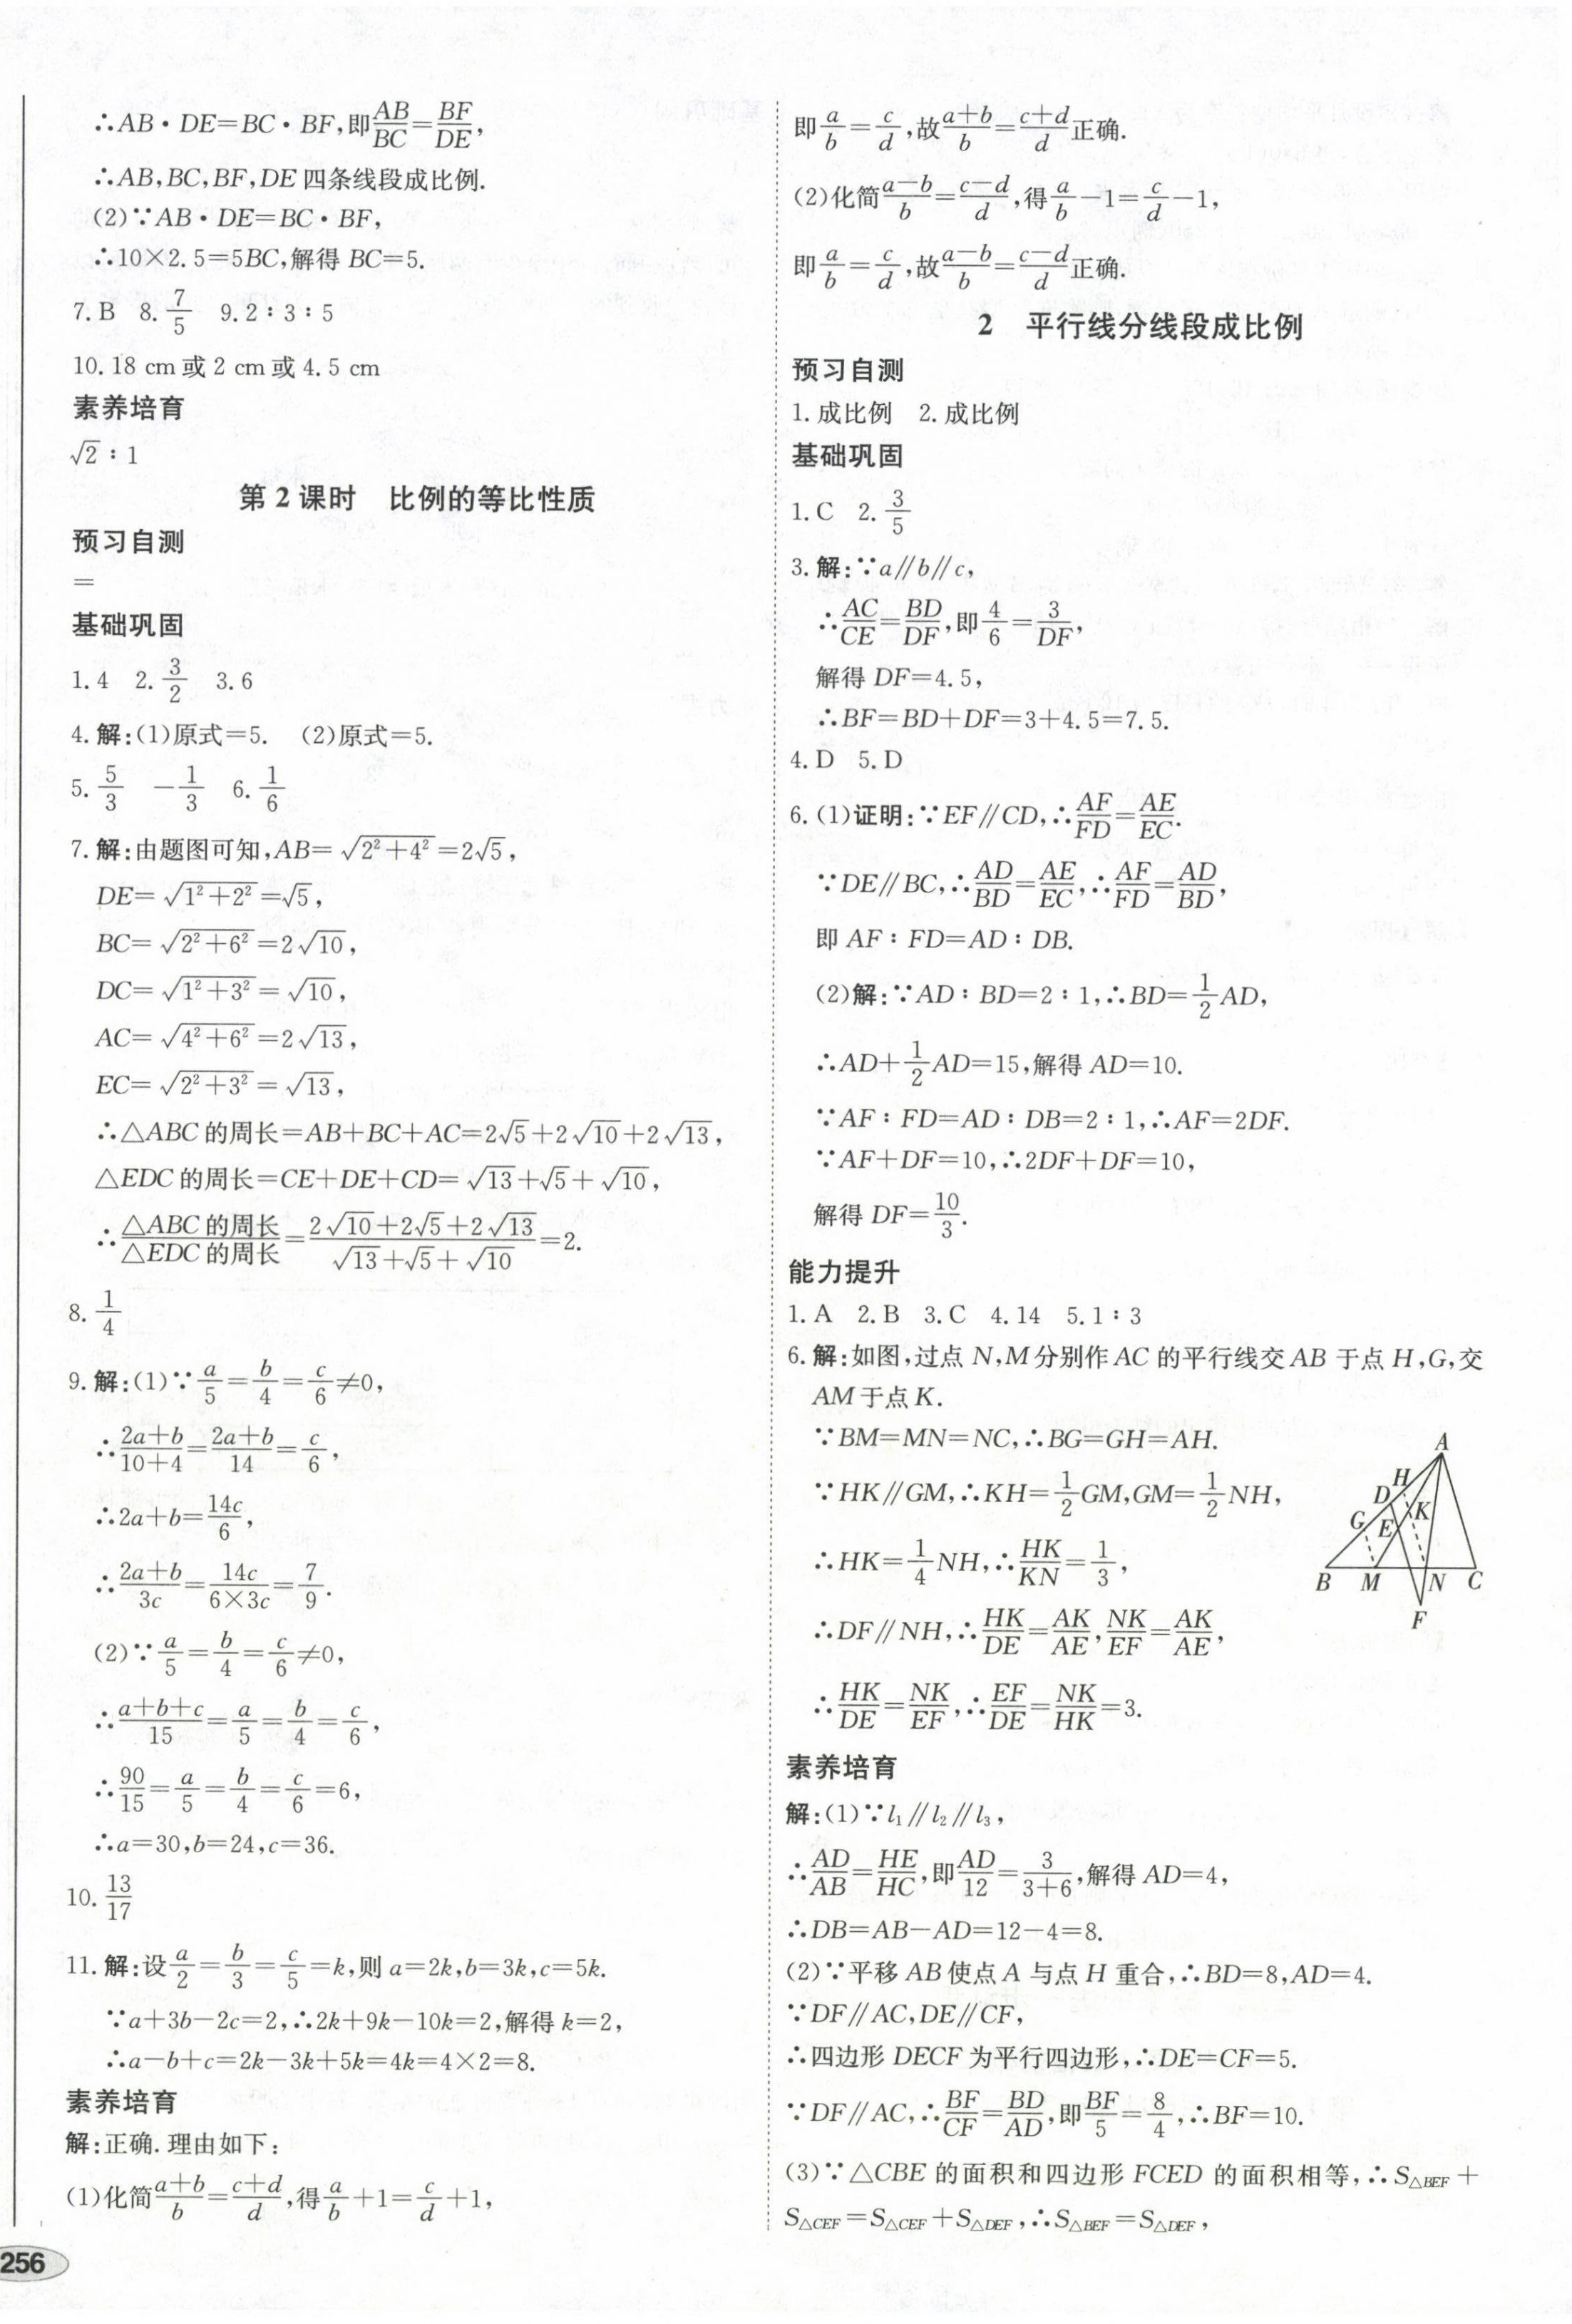 ∴AB·DE=BC·BF,即AB/BC=BF/DE,
∴AB,BC,BF,DE四条线段成比例.
(2)∵AB·DE=BC·BF,
∴10×2.5=5BC,解得BC=5.
7.B 8.7/5 9.2∶3∶5
10.18 cm或2 cm或4.5 cm
素养培育
√2∶1
第2课时 比例的等比性质
预习自测
=
基础巩固
1.4 2.3/2 3.6
4.解:(1)原式=5. (2)原式=5.
5.5/3 -1/3 6.1/6
7.解:由题图可知,AB=√(2²+4²)=2√5,
DE=√(1²+2²)=√5,
BC=√(2²+6²)=2√10,
DC=√(1²+3²)=√10,
AC=√(4²+6²)=2√13,
EC=√(2²+3²)=√13,
∴△ABC的周长=AB+BC+AC=2√5+2√10+2√13,
△EDC的周长=CE+DE+CD=√13+√5+√10,
∴△ABC的周长/△EDC的周长=(2√10+2√5+2√13)/(√13+√5+√10)=2.
8.1/4
9.解:(1)∵a/5=b/4=c/6≠0,
∴(2a+b)/(10+4)=(2a+b)/14=c/6,
∴2a+b=14c/6,
∴(2a+b)/3c=14c/(6×3c)=7/9.
(2)∵a/5=b/4=c/6≠0,
∴(a+b+c)/15=a/5=b/4=c/6,
∴90/15=a/5=b/4=c/6=6,
∴a=30,b=24,c=36.
10.13/17
11.解:设a/2=b/3=c/5=k,则a=2k,b=3k,c=5k.
∵a+3b-2c=2,∴2k+9k-10k=2,解得k=2,
∴a-b+c=2k-3k+5k=4k=4×2=8.
素养培育
解:正确.理由如下:
(1)化简(a+b)/b=(c+d)/d,得a/b+1=c/d+1,
256
即a/b=c/d,故(a+b)/b=(c+d)/d正确.
(2)化简(a-b)/b=(c-d)/d,得a/b-1=c/d-1,
即a/b=c/d,故(a-b)/b=(c-d)/d正确.
2 平行线分线段成比例
预习自测
1.成比例 2.成比例
基础巩固
1.C 2.3/5
3.解:∵a∥b∥c,
∴AC/CE=BD/DF,即4/6=3/DF,
解得DF=4.5,
∴BF=BD+DF=3+4.5=7.5.
4.D 5.D
6.(1)证明:∵EF∥CD,∴AF/FD=AE/EC.
∵DE∥BC,∴AD/BD=AE/EC,∴AF/FD=AD/BD,
即AF∶FD=AD∶DB.
(2)解:∵AD∶BD=2∶1,∴BD=1/2AD,
∴AD+1/2AD=15,解得AD=10.
∵AF∶FD=AD∶DB=2∶1,∴AF=2DF.
∵AF+DF=10,∴2DF+DF=10,
解得DF=10/3.
能力提升
1.A 2.B 3.C 4.14 5.1∶3
6.解:如图,过点N,M分别作AC的平行线交AB于点H,G,交
AM于点K.
∵BM=MN=NC,∴BG=GH=AH.
∵HK∥GM,∴KH=1/2GM,GM=1/2NH,
∴HK=1/4NH,∴HK/KN=1/3,
∴DF∥NH,∴HK/DE=AK/AE,NK/EF=AK/AE,
∴HK/DE=NK/EF,∴EF/DE=NK/HK=3.
A
H
D
K
G
E
B
M
N
C
F
素养培育
解:(1)∵l₁∥l₂∥l₃,
∴AD/AB=HE/HC,即AD/12=3/(3+6),解得AD=4,
∴DB=AB-AD=12-4=8.
(2)∵平移AB使点A与点H重合,∴BD=8,AD=4.
∵DF∥AC,DE∥CF,
∴四边形DECF为平行四边形,∴DE=CF=5.
∵DF∥AC,∴BF/CF=BD/AD,即BF/5=8/4,∴BF=10.
(3)∵△CBE的面积和四边形FCED的面积相等,∴S△BEF+
S△CEF=S△CEF+S△DEF,∴S△BEF=S△DEF,